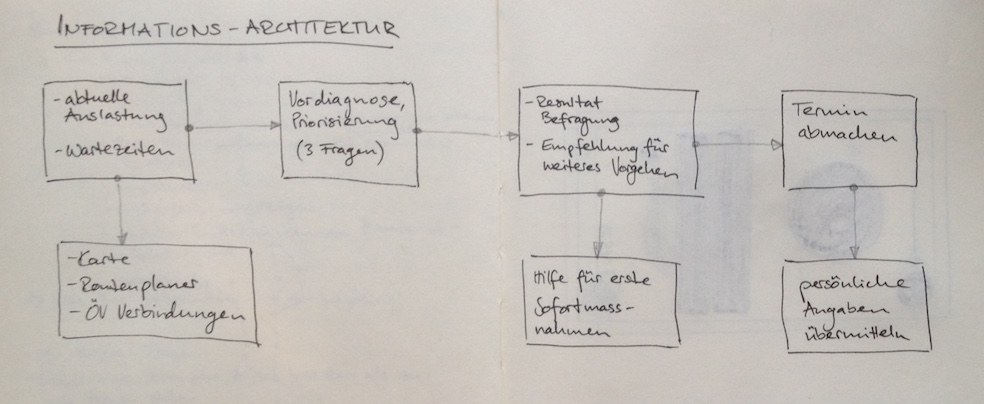 INFORMATIONS-ARCHITEKTUR
- aktuelle
Auslastung
- Wartezeiten
Vordiagnose,
Priorisierung
(3 Fragen)
- Resultat
Befragung
- Empfehlung für
weiteres Vorgehen
Termin
abmachen
- Karte
- Routenplaner
- ÖV Verbindungen
Hilfe für erste
Sofortmass-
nahmen
persönliche
Angaben
übermitteln